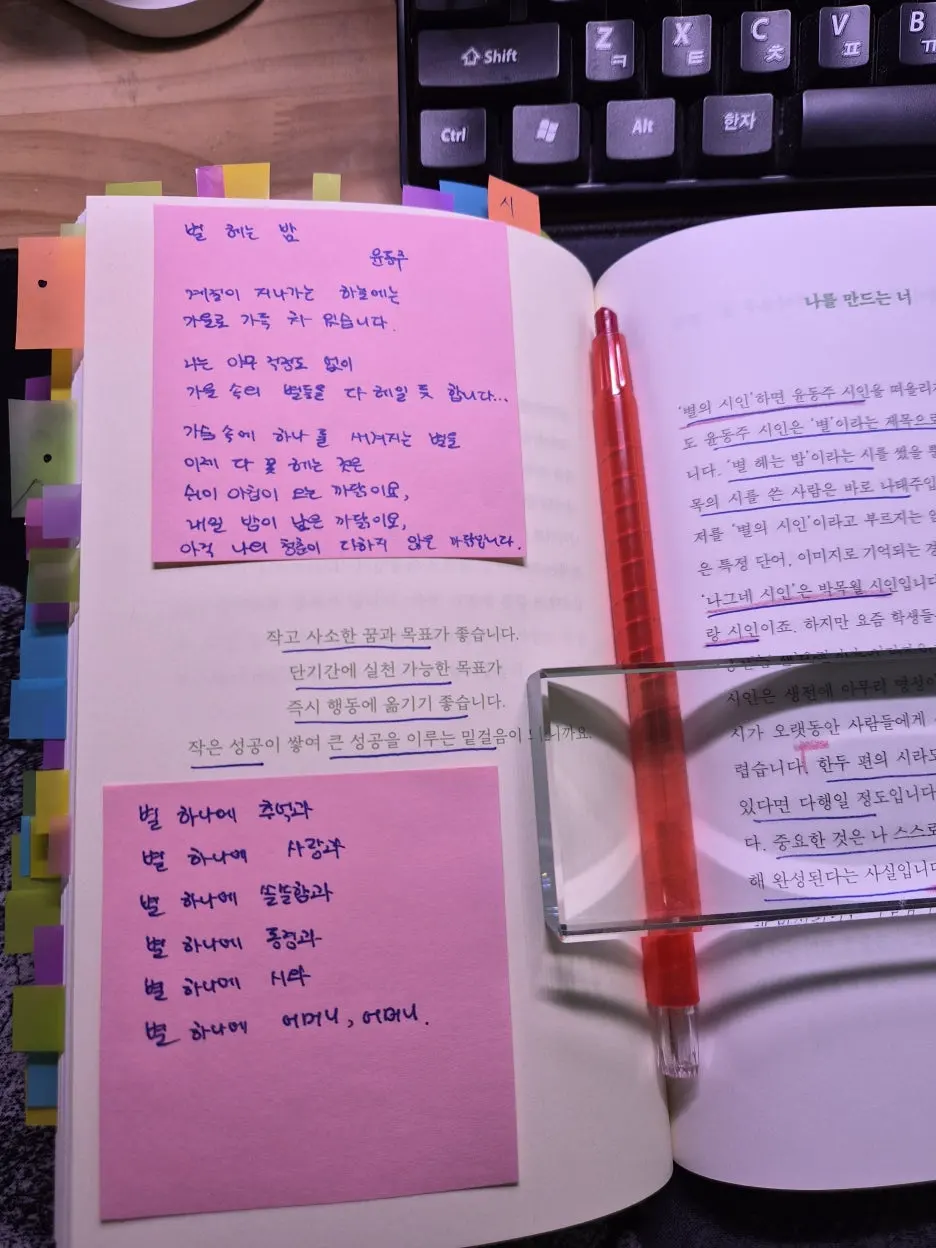 Shift
Z ㅋ
X ㅌ
C ㅊ
V ㅍ
B ㅠ
Ctrl
Alt
한자
시
별 헤는 밤
윤동주
계절이 지나가는 하늘에는
가을로 가득 차 있습니다.
나는 아무 걱정도 없이
가을 속의 별들을 다 헤일 듯 합니다...
가슴 속에 하나 둘 새겨지는 별을
이제 다 못 헤는 것은
쉬이 아침이 오는 까닭이오,
내일 밤이 남은 까닭이오,
아직 나의 청춘이 다하지 않은 까닭입니다.
작고 사소한 꿈과 목표가 좋습니다.
단기간에 실천 가능한 목표가
즉시 행동에 옮기기 좋습니다.
작은 성공이 쌓여 큰 성공을 이루는 밑걸음이
별 하나에 추억과
별 하나에 사랑과
별 하나에 쓸쓸함과
별 하나에 동경과
별 하나에 시와
별 하나에 어머니, 어머니.
나를 만드는 너
'별의 시인'하면 윤동주 시인을 떠올리
도 윤동주 시인은 '별'이라는 제목으로
니다. '별 헤는 밤'이라는 시를 썼을
목의 시를 쓴 사람은 바로 나태주입
저를 '별의 시인'이라고 부르지는
은 특정 단어, 이미지로 기억되는
'나그네 시인'은 박목월 시인입니다
랑 시인이죠. 하지만 요즘 학생들
시인은 생전에 아무리 명성이
시가 오랫동안 사람들에게
렵습니다. 한두 편의 시라도
있다면 다행일 정도입니다
다. 중요한 것은 나 스스로
해 완성된다는 사실입니다